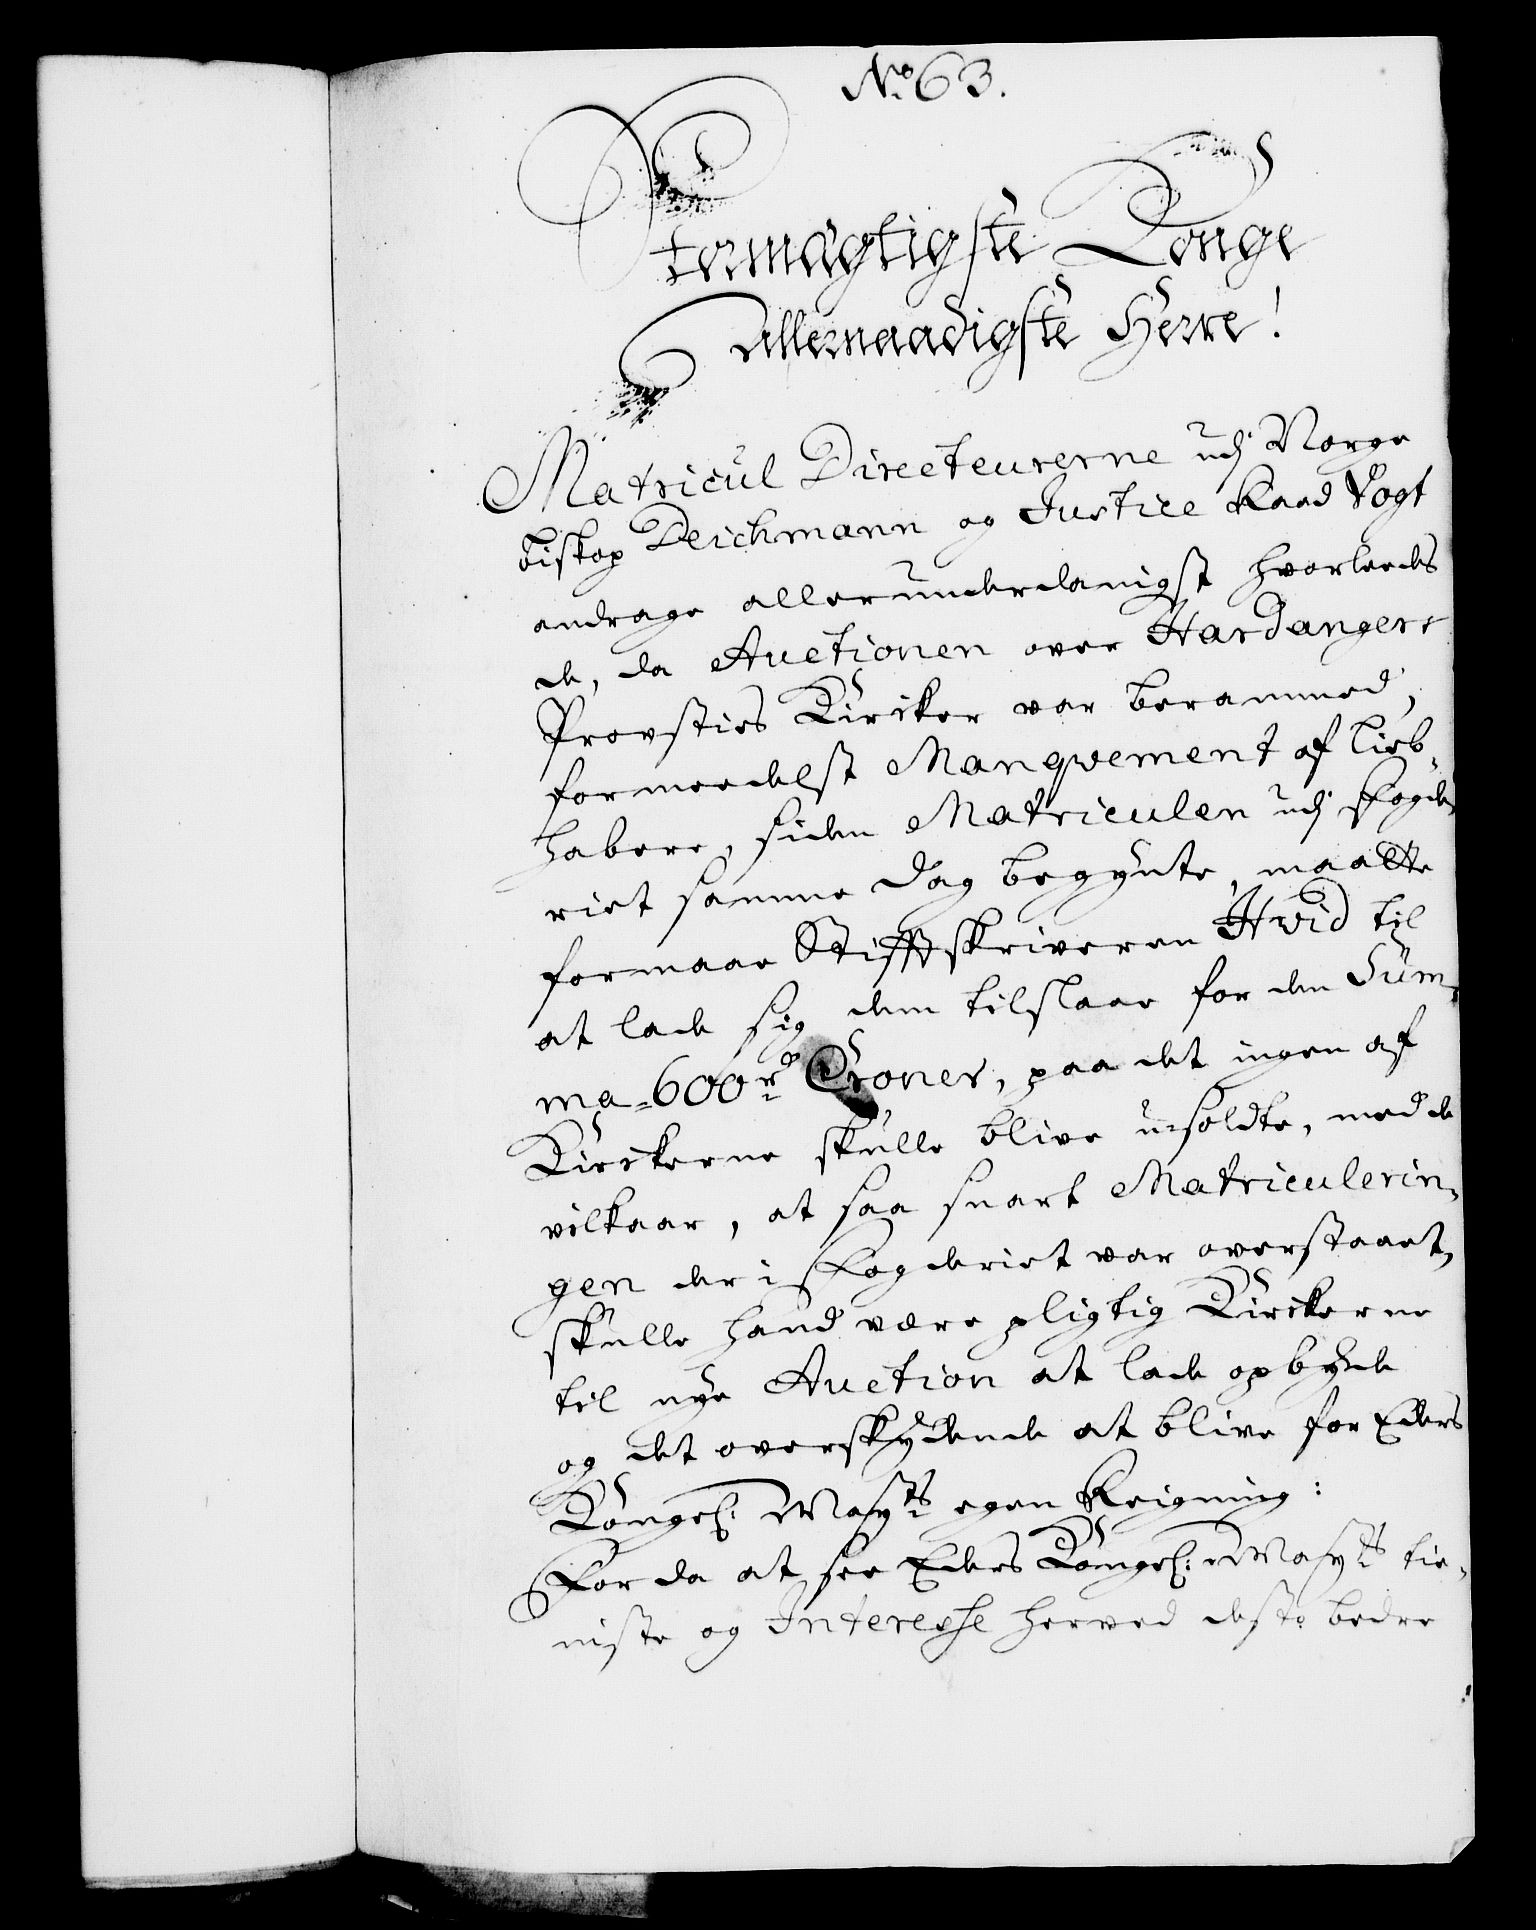 No. 63.
Stormägtigste Konge
allernaadigste Herre!
Matricul Directeurerne udj Norge
Biskop Deichmann og Justice Raad Vogt
andrage allerunderdanigst hvorleedes
de, da Auctionen over Hardangers
Provsties Kircker var berammed,
formeedelst Manqvement af lieb-
habere, siden Matriculen udj Fogde
riet samme dag begynte, maatte
formaae Stifftskriveren Hvid til
at lade sig dem tilslaae for den Sum-
ma - 600 rdr Croner, paa det ingen af
Kirckerne skulle blive usoldte, med de
vilkaar, at saa snart Matriculerin-
gen der i Fogderiet var overstaaet,
skulle hand være pligtig Kirckerne
til nye Auction at lade opbyde
og det overskydende at blive for Eders
Kongel: Maj:ts egen Reigning:
For da at see Eders Kongel: Maj:ts tie-
niste og Interesse herved desto bedre